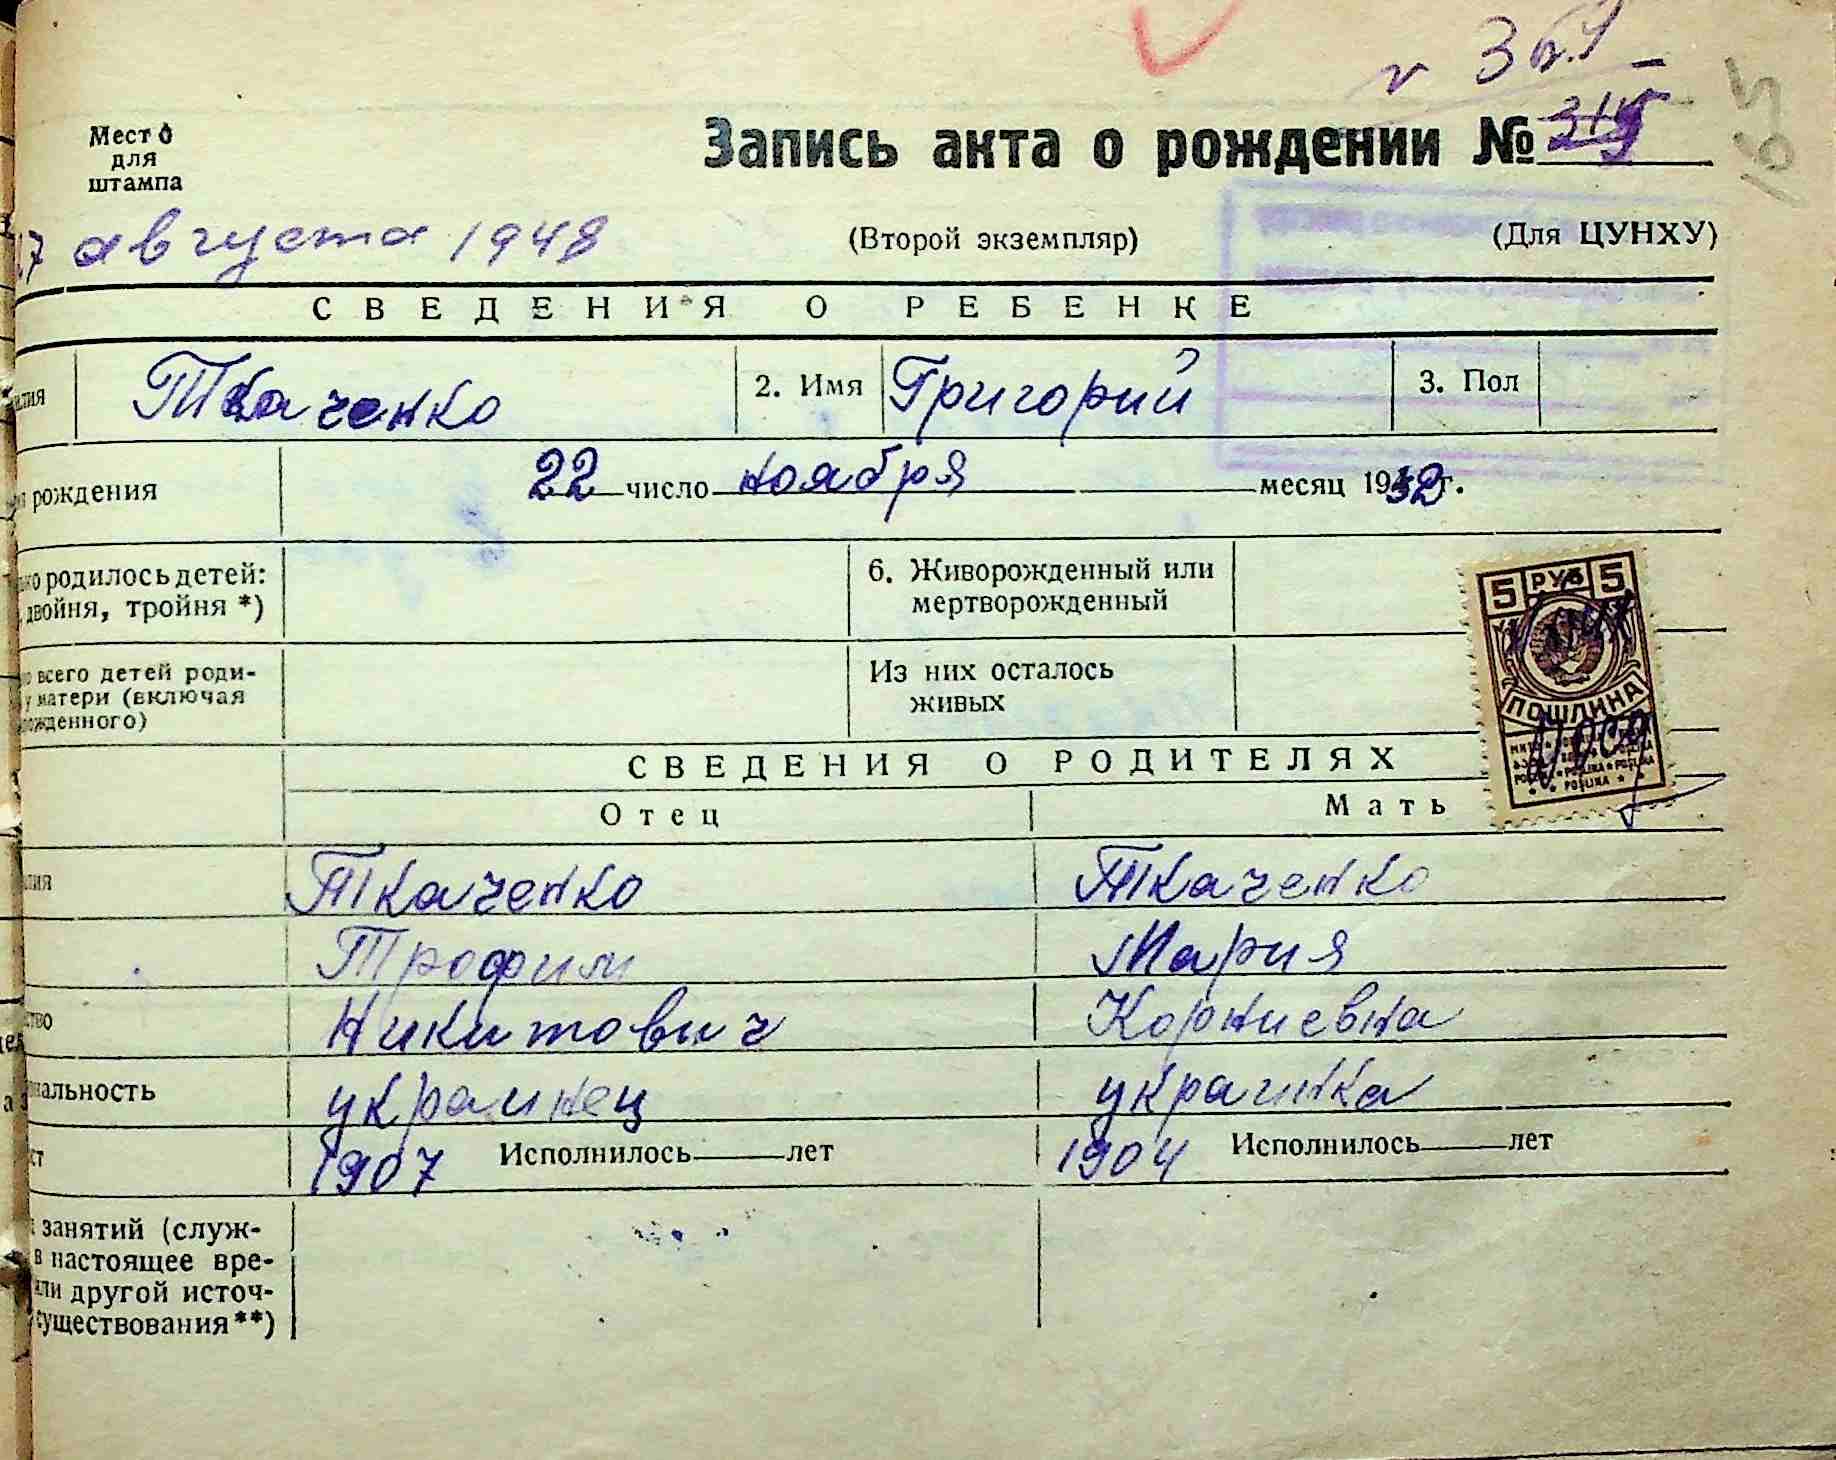 165
Место
для
штампа
Запись акта о рождении №
27 августа 1948
(Второй экземпляр)
(Для ЦУНХУ)
СВЕДЕНИЯ О РЕБЕНКЕ
илия Ткаченко 2. Имя Григорий 3. Пол
рождения 22 число ноября месяц 1932 г.
ко родилось детей:
двойня, тройня *)
6. Живорожденный или
мертворожденный
о всего детей роди-
у матери (включая
рожденного)
Из них осталось
живых
5 РУБ 5
ПОШЛИНА
СВЕДЕНИЯ О РОДИТЕЛЯХ
Отец Мать
лия Ткаченко Ткаченко
Трофим Мария
ство Никитович Корниевна
нальность украинец украинка
ст 1907 Исполнилось лет 1904 Исполнилось лет
занятий (служ-
в настоящее вре-
или другой источ-
существования **)